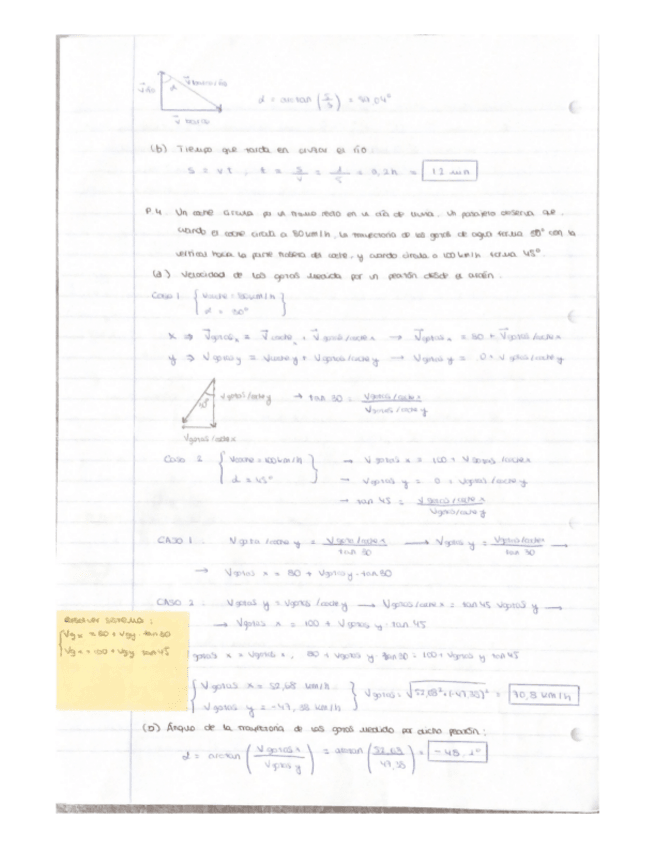 V río
α
V barca/río
V barca
α = arctan (5/3) = 59,04°
(b) Tiempo que tarda en cruzar el río:
s = v t, t = s/v = 1/5 = 0,2h = 12 min
P.4. Un coche circula por un tramo recto en un día de lluvia. Un pasajero observa que,
cuando el coche circula a 80 km/h, la trayectoria de las gotas de agua forma 50° con la
vertical hacia la parte trasera del coche, y cuando circula a 100 km/h forma 45°.
(a) Velocidad de las gotas medida por un peatón desde el arcén.
Caso 1 { Vcoche = 80 km/h
α = 50°
x ⇒ Vgotas x = Vcoche x + Vgotas/coche x → Vgotas x = 80 + Vgotas/coche x
y ⇒ Vgotas y = Vcoche y + Vgotas/coche y → Vgotas y = 0 + Vgotas/coche y
50°
Vgotas/coche y → tan 50 = Vgotas/coche x / Vgotas/coche y
Vgotas/coche x
Caso 2 { Vcoche = 100 km/h → Vgotas x = 100 + Vgotas/coche x
α = 45° → Vgotas y = 0 + Vgotas/coche y
→ tan 45 = Vgotas/coche x / Vgotas/coche y
CASO 1. Vgota/coche y = Vgota/coche x / tan 50 → Vgotas y = Vgotas/coche x / tan 50 →
→ Vgotas x = 80 + Vgotas y · tan 50
CASO 2: Vgotas y = Vgotas/coche y → Vgotas/coche x = tan 45 Vgotas y →
→ Vgotas x = 100 + Vgotas y · tan 45
Resolver sistema:
{ Vgx = 80 + Vgy · tan 50
Vgx = 100 + Vgy tan 45
gotas x = Vgotas x, 80 + Vgotas y tan 50 = 100 + Vgotas y tan 45
{ Vgotas x = 52,68 km/h
Vgotas y = -47,33 km/h } Vgotas = √52,68² + (-47,33)² = 70,8 km/h
(b) Ángulo de la trayectoria de las gotas medido por dicho peatón:
α = arctan (Vgotas x / Vgotas y) = arctan (52,68 / 47,33) = -48,1°